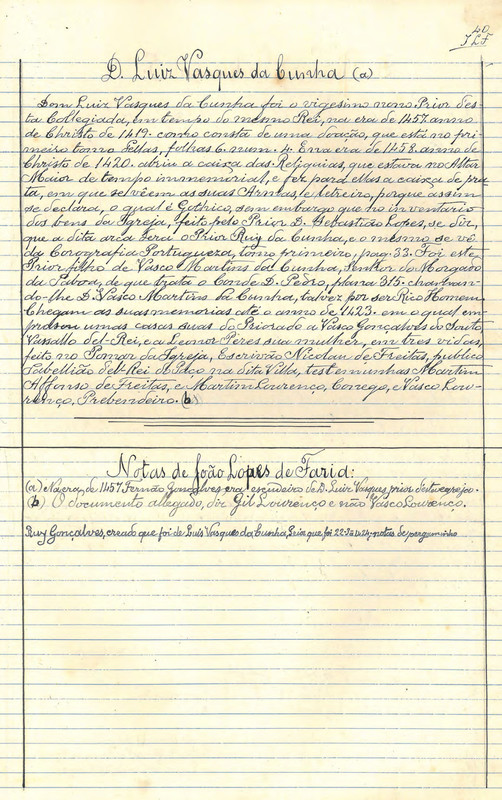 40
JLF
D. Luiz Vasques da Cunha (a)
Dom Luiz Vasques da Cunha foi o vigesimo nono Prior des-
ta Collegiada, em tempo do mesmo Rei, na era de 1457. anno
de Christo de 1419. como consta de uma doação, que está no pri-
meiro tomo Pellas, folhas 6. num. 4. Em era de 1458. anno de
Christo de 1420. abriu a caixa das Reliquias, que estava no Altar
Maior de tempo immemorial, e fez para ellas a caixa de pra-
ta, em que se vêem as suas Armas, e letreiro, porque assim
se declara, o qual é Gothico, sem embargo que no inventario
dos bens da Igreja, feito pelo Prior D. Sebastião Lopes, se diz,
que a dita arca dera o Prior Ruy da Cunha, e o mesmo se vê
da Corografia Portugueza, tomo primeiro, pag. 33. Foi este
Prior filho de Vasco Martins da Cunha, Senhor do Morgado
da Taboa, de que trata o Conde D. Pedro, plana 315. chaman-
do-lhe D. Vasco Martins da Cunha, talvez por ser Rico Homem
Chegam as suas memorias até o anno de 1423. em o qual em-
prasou umas casas suas do Priorado a Vasco Gonçalves do Souto,
Vassallo del-Rei, e a Leonor Peres sua mulher, em tres vidas,
feito no Pomar da Igreja, Escrivão Nicolau de Freitas, publico
Tabellião del-Rei do Paço na dita Villa, testemunhas Martim
Affonso de Freitas, e Martim Lourenço, Conego, e Vasco Lou-
renço, Prebendeiro. (b)
Notas de João Lopes de Faria:
(a) Na era de 1457 Fernão Gonçalves era escudeiro de D. Luiz Vasques, prior desta egreja.
(b) O documento allegado, diz Gil Lourenço e não Vasco Lourenço.
Ruy Gonçalves, creado que foi de Luis Vasques da Cunha, Prior que foi 22-1424; notas de pergaminho